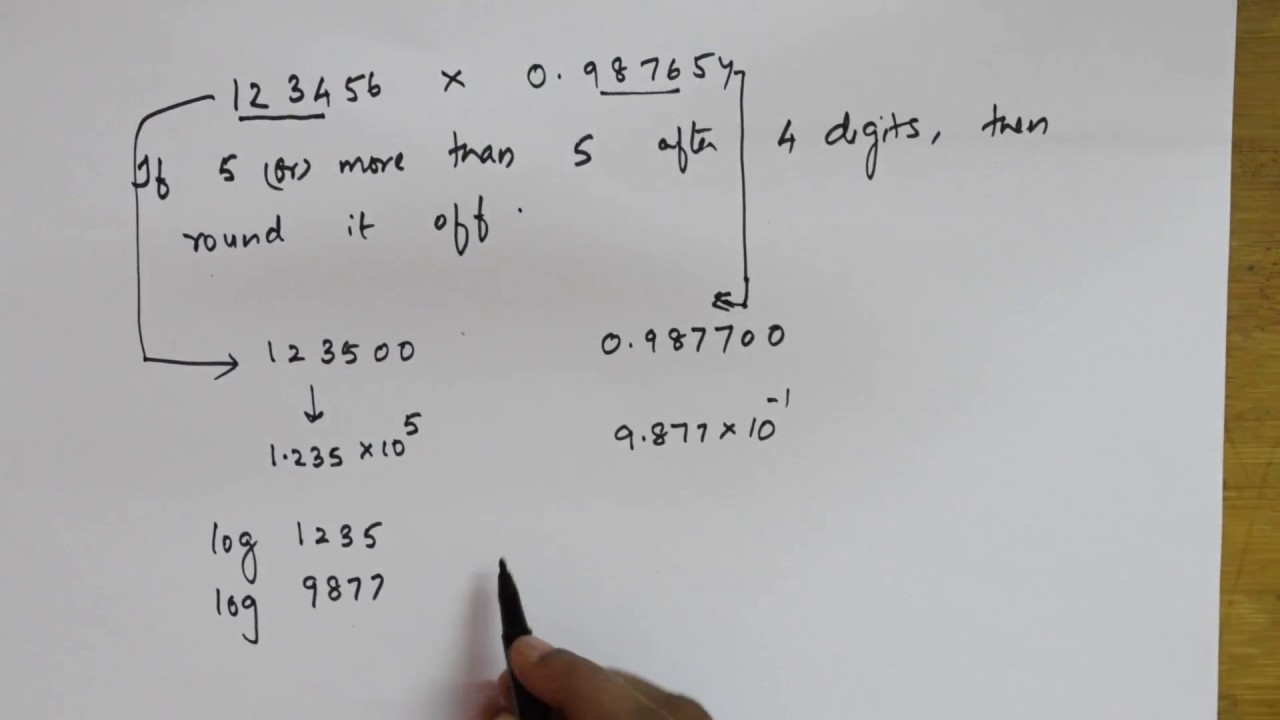 123456 × 0.987654
If 5 (or) more than 5 after 4 digits, then
round it off.
123500 0.987700
↓
1.235 × 10⁵ 9.877 × 10⁻¹
log 1235
log 9877